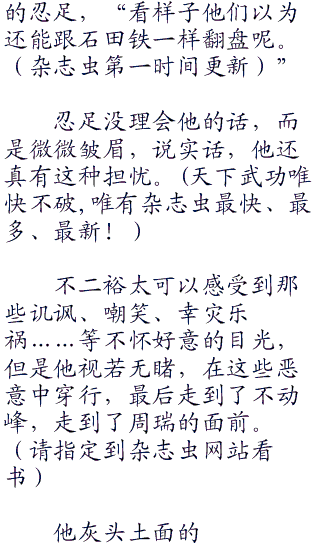 的忍足，“看样子他们以为
还能跟石田铁一样翻盘呢。
（杂志虫第一时间更新）”
忍足没理会他的话，而
是微微皱眉，说实话，他还
真有这种担忧。(天下武功唯
快不破,唯有杂志虫最快、最
多、最新！）
不二裕太可以感受到那
些讥讽、嘲笑、幸灾乐
祸……等不怀好意的目光，
但是他视若无睹，在这些恶
意中穿行，最后走到了不动
峰，走到了周瑞的面前。
（请指定到杂志虫网站看
书）
他灰头土面的